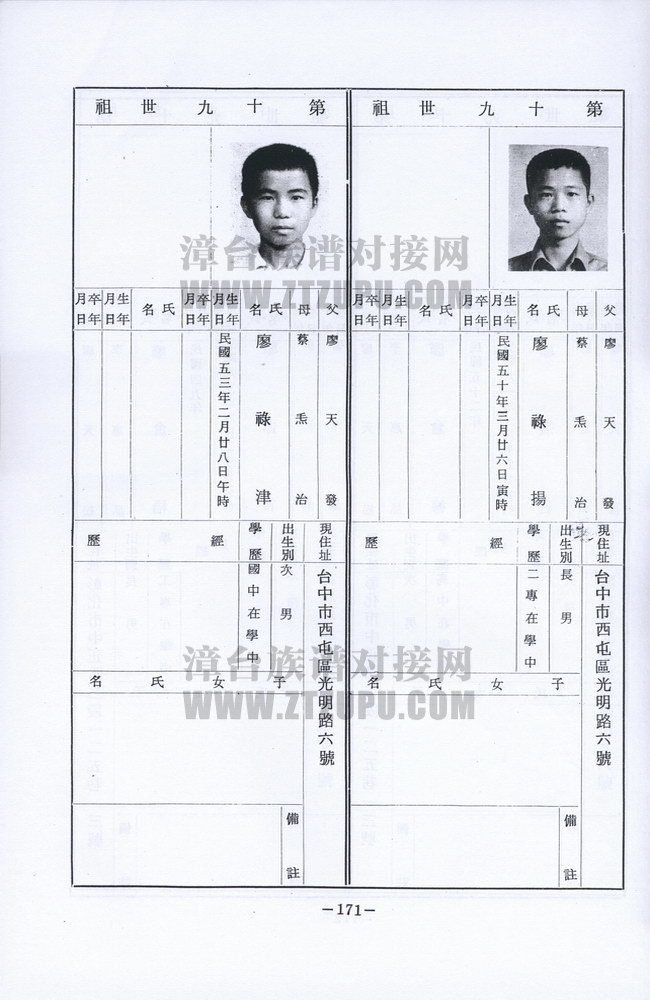 第十九世祖
父 廖天發
母 蔡𤆬治
氏名 廖祿揚
生年月日 民國五十年三月廿六日寅時
卒年月日
氏名
生年月日
卒年月日
現住址 台中市西屯區光明路六號
出生別 長男
學歷 二專在學中
經歷
子女氏名
備註
第十九世祖
父 廖天發
母 蔡𤆬治
氏名 廖祿津
生年月日 民國五三年二月廿八日午時
卒年月日
氏名
生年月日
卒年月日
現住址 台中市西屯區光明路六號
出生別 次男
學歷 國中在學中
經歷
子女氏名
備註
-171-
漳台族谱对接网
WWW.ZTZUPU.COM
漳台族谱对接网
WWW.ZTZUPU.COM